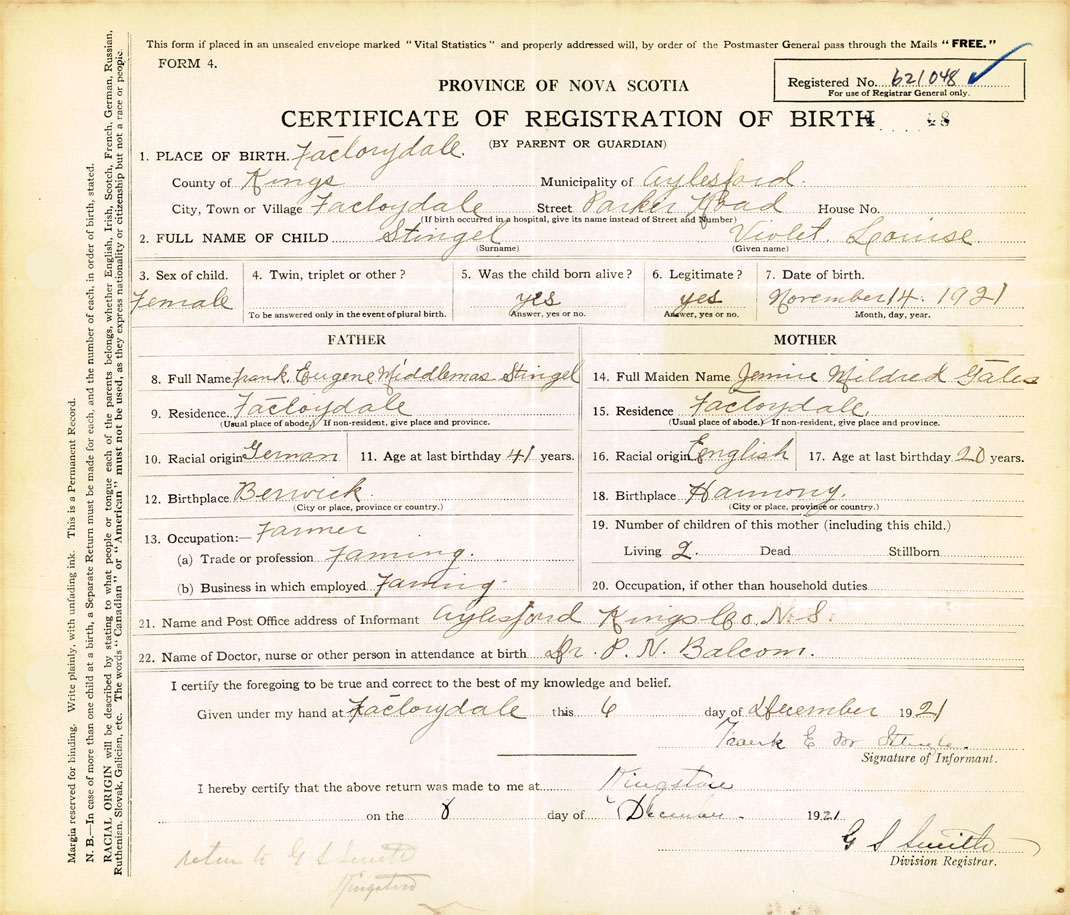 This form if placed in an unsealed envelope marked "Vital Statistics" and properly addressed will, by order of the Postmaster General pass through the Mails "FREE."
FORM 4.
Registered No. 621048
For use of Registrar General only.
PROVINCE OF NOVA SCOTIA
CERTIFICATE OF REGISTRATION OF BIRTH
(BY PARENT OR GUARDIAN)
1. PLACE OF BIRTH. Factorydale.
County of Kings Municipality of Aylesford.
City, Town or Village Factoydale Street Parker Road House No.
(If birth occurred in a hospital, give its name instead of Street and Number)
2. FULL NAME OF CHILD Stingel Violet. Louise
(Surname) (Given name)
3. Sex of child. 4. Twin, triplet or other? 5. Was the child born alive? 6. Legitimate? 7. Date of birth.
Female yes yes November 14. 1921
To be answered only in the event of plural birth. (Answer, yes or no. Answer, yes or no. Month, day, year.
FATHER MOTHER
8. Full Name Frank. Eugene Middlemas Stingel 14. Full Maiden Name Jennie Mildred Gates
9. Residence. Factoydale 15. Residence Factoydale.
(Usual place of abode.) If non-resident, give place and province. (Usual place of abode.) If non-resident, give place and province.
10. Racial origin German 11. Age at last birthday 41 years. 16. Racial origin English 17. Age at last birthday 20 years.
12. Birthplace Berwick. 18. Birthplace Harmony.
(City or place, province or country.) (City or place, province or country.)
13. Occupation:— Farmer 19. Number of children of this mother (including this child.)
(a) Trade or profession Faming. Living 2. Dead Stillborn
(b) Business in which employed Faming. 20. Occupation, if other than household duties
21. Name and Post Office address of Informant Aylesford Kings Co. N.S.
22. Name of Doctor, nurse or other person in attendance at birth Dr. P. N. Balcom.
I certify the foregoing to be true and correct to the best of my knowledge and belief.
Given under my hand at Factorydale this 6 day of December 1921
Frank E M Stingle
Signature of Informant.
I hereby certify that the above return was made to me at Kingston
on the 8 day of December. 1921
G S Smith
Division Registrar.
return to G S Smith
Kingston
Margin reserved for binding. Write plainly, with unfading ink. This is a Permanent Record.
N. B.—In case of more than one child at a birth, a Separate Return must be made for each, and the number of each, in order of birth, stated.
RACIAL ORIGIN will be described by stating to what people or tongue each of the parents belongs, whether English, Irish, Scotch, French, German, Russian,
Ruthenian, Slovak, Galician, etc. The words "Canadian" or "American" must not be used, as they express nationality or citizenship but not a race or people.